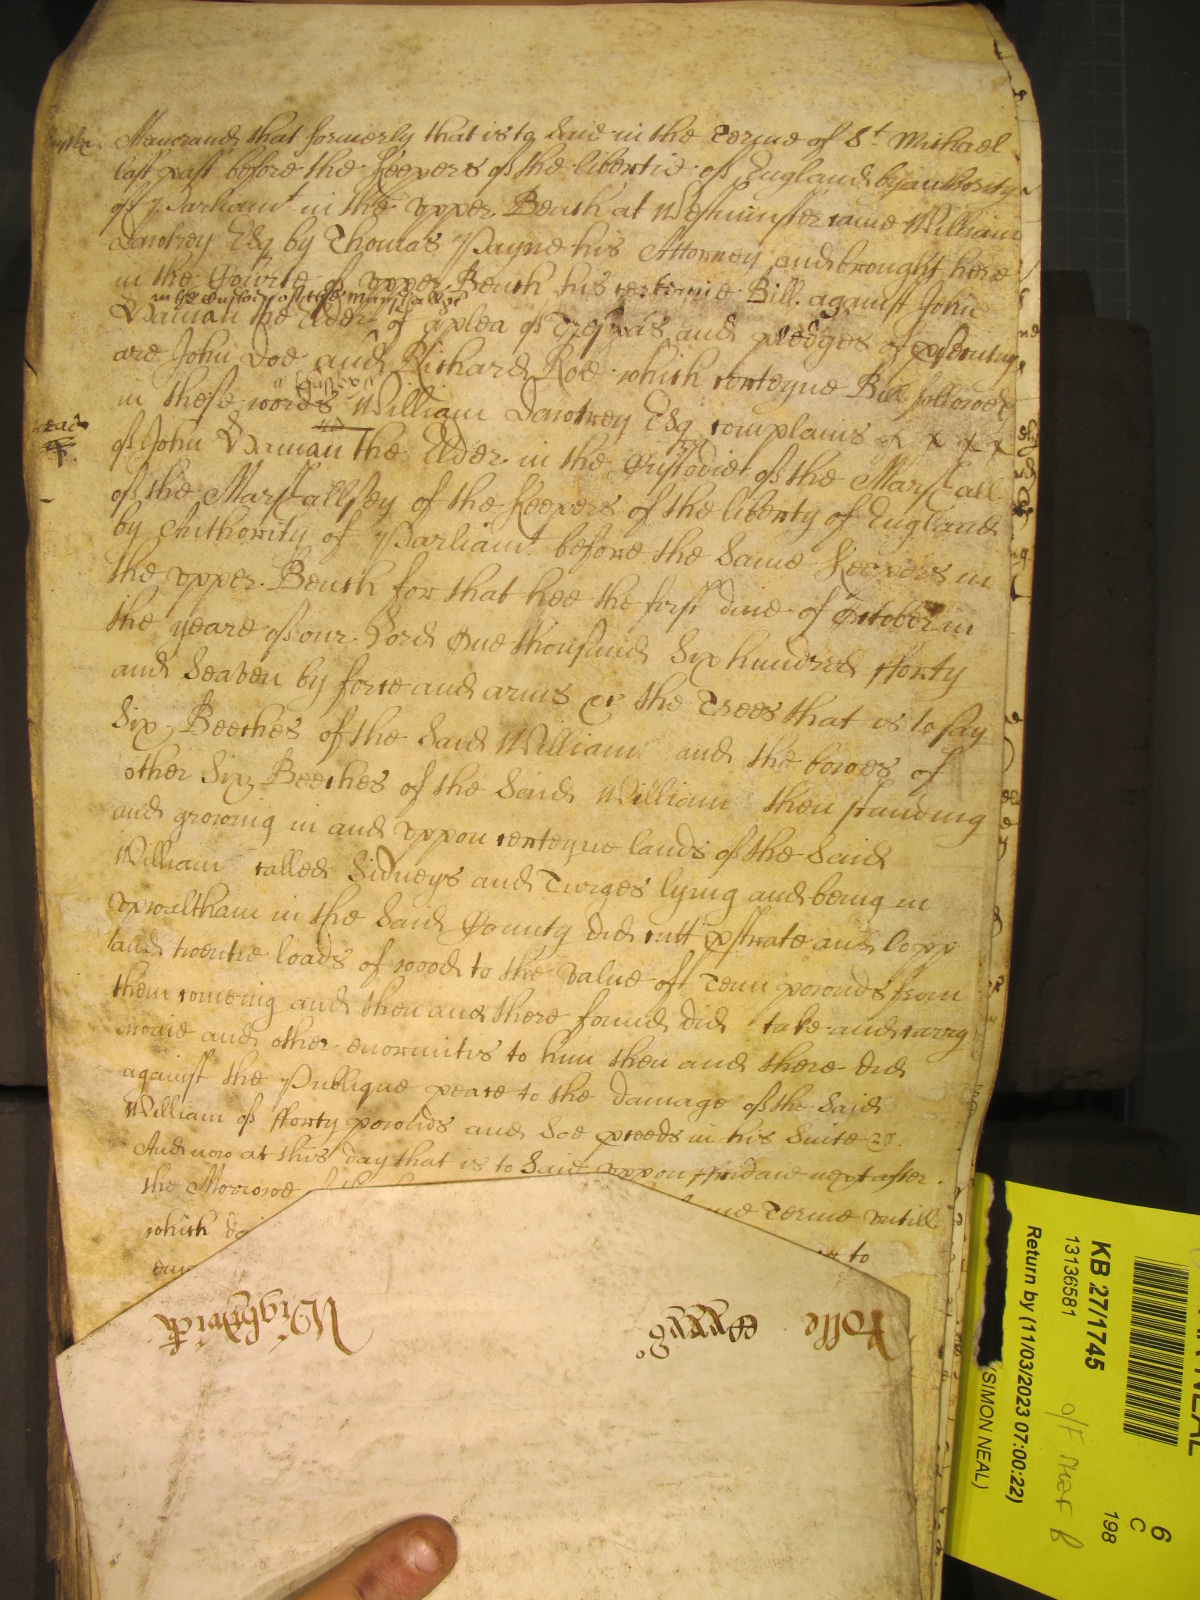 Memorand that formerly that is to Saie in the Terme of St Michael
last past before the Keepers of the libertie of England by authority
of Parliamt in the upper Bench at Westminster came William
Dawtrey Esq by Thomas Payne his Attorney and brought here
in the Courte of upper Bench his certeine Bill against John
in the Custody of the Marshall &c
Haman the Elder of a plea of Trespas and pledges of psecuting
are John Doe and Richard Roe which certeyne Bill followeth
in these words William Dawtrey Esq complains x x x x
of John Haman the Elder in the Custodie of the Marshall
of the Marshallsey of the Keepers of the liberty of England
by Authority of Parliamt before the Same Keepers in
the upper Bench for that hee the first daie of October in
the yeare of our Lord One thousand Six hundred fforty
and Seaven by force and armes &c the Trees that is to say
Six Beeches of the Said William and the bowes of
other Six Beeches of the Said William then standing
and growing in and uppon certeyne lands of the Said
William called Sidneys and Turges lying and being in
upwaltham in the Said County did cutt pstrate and lopp
and twentie loads of wood to the value of Tenn pownds from
them comeing and then and there found did take and carry
awaie and other enormities to him then and there did
against the Publique peace to the damage of the Said
William of fforty pownds and Soe pceeds in his Suite &c.
And now at this day that is to Saie uppon ffridaie next after
the Morrowe
me Terme untill
which
to
Wightwick
Rolle
KB 27/1745
13136581
Return by (11/03/2023 07:00:22)
(SIMON NEAL)
6
C
198